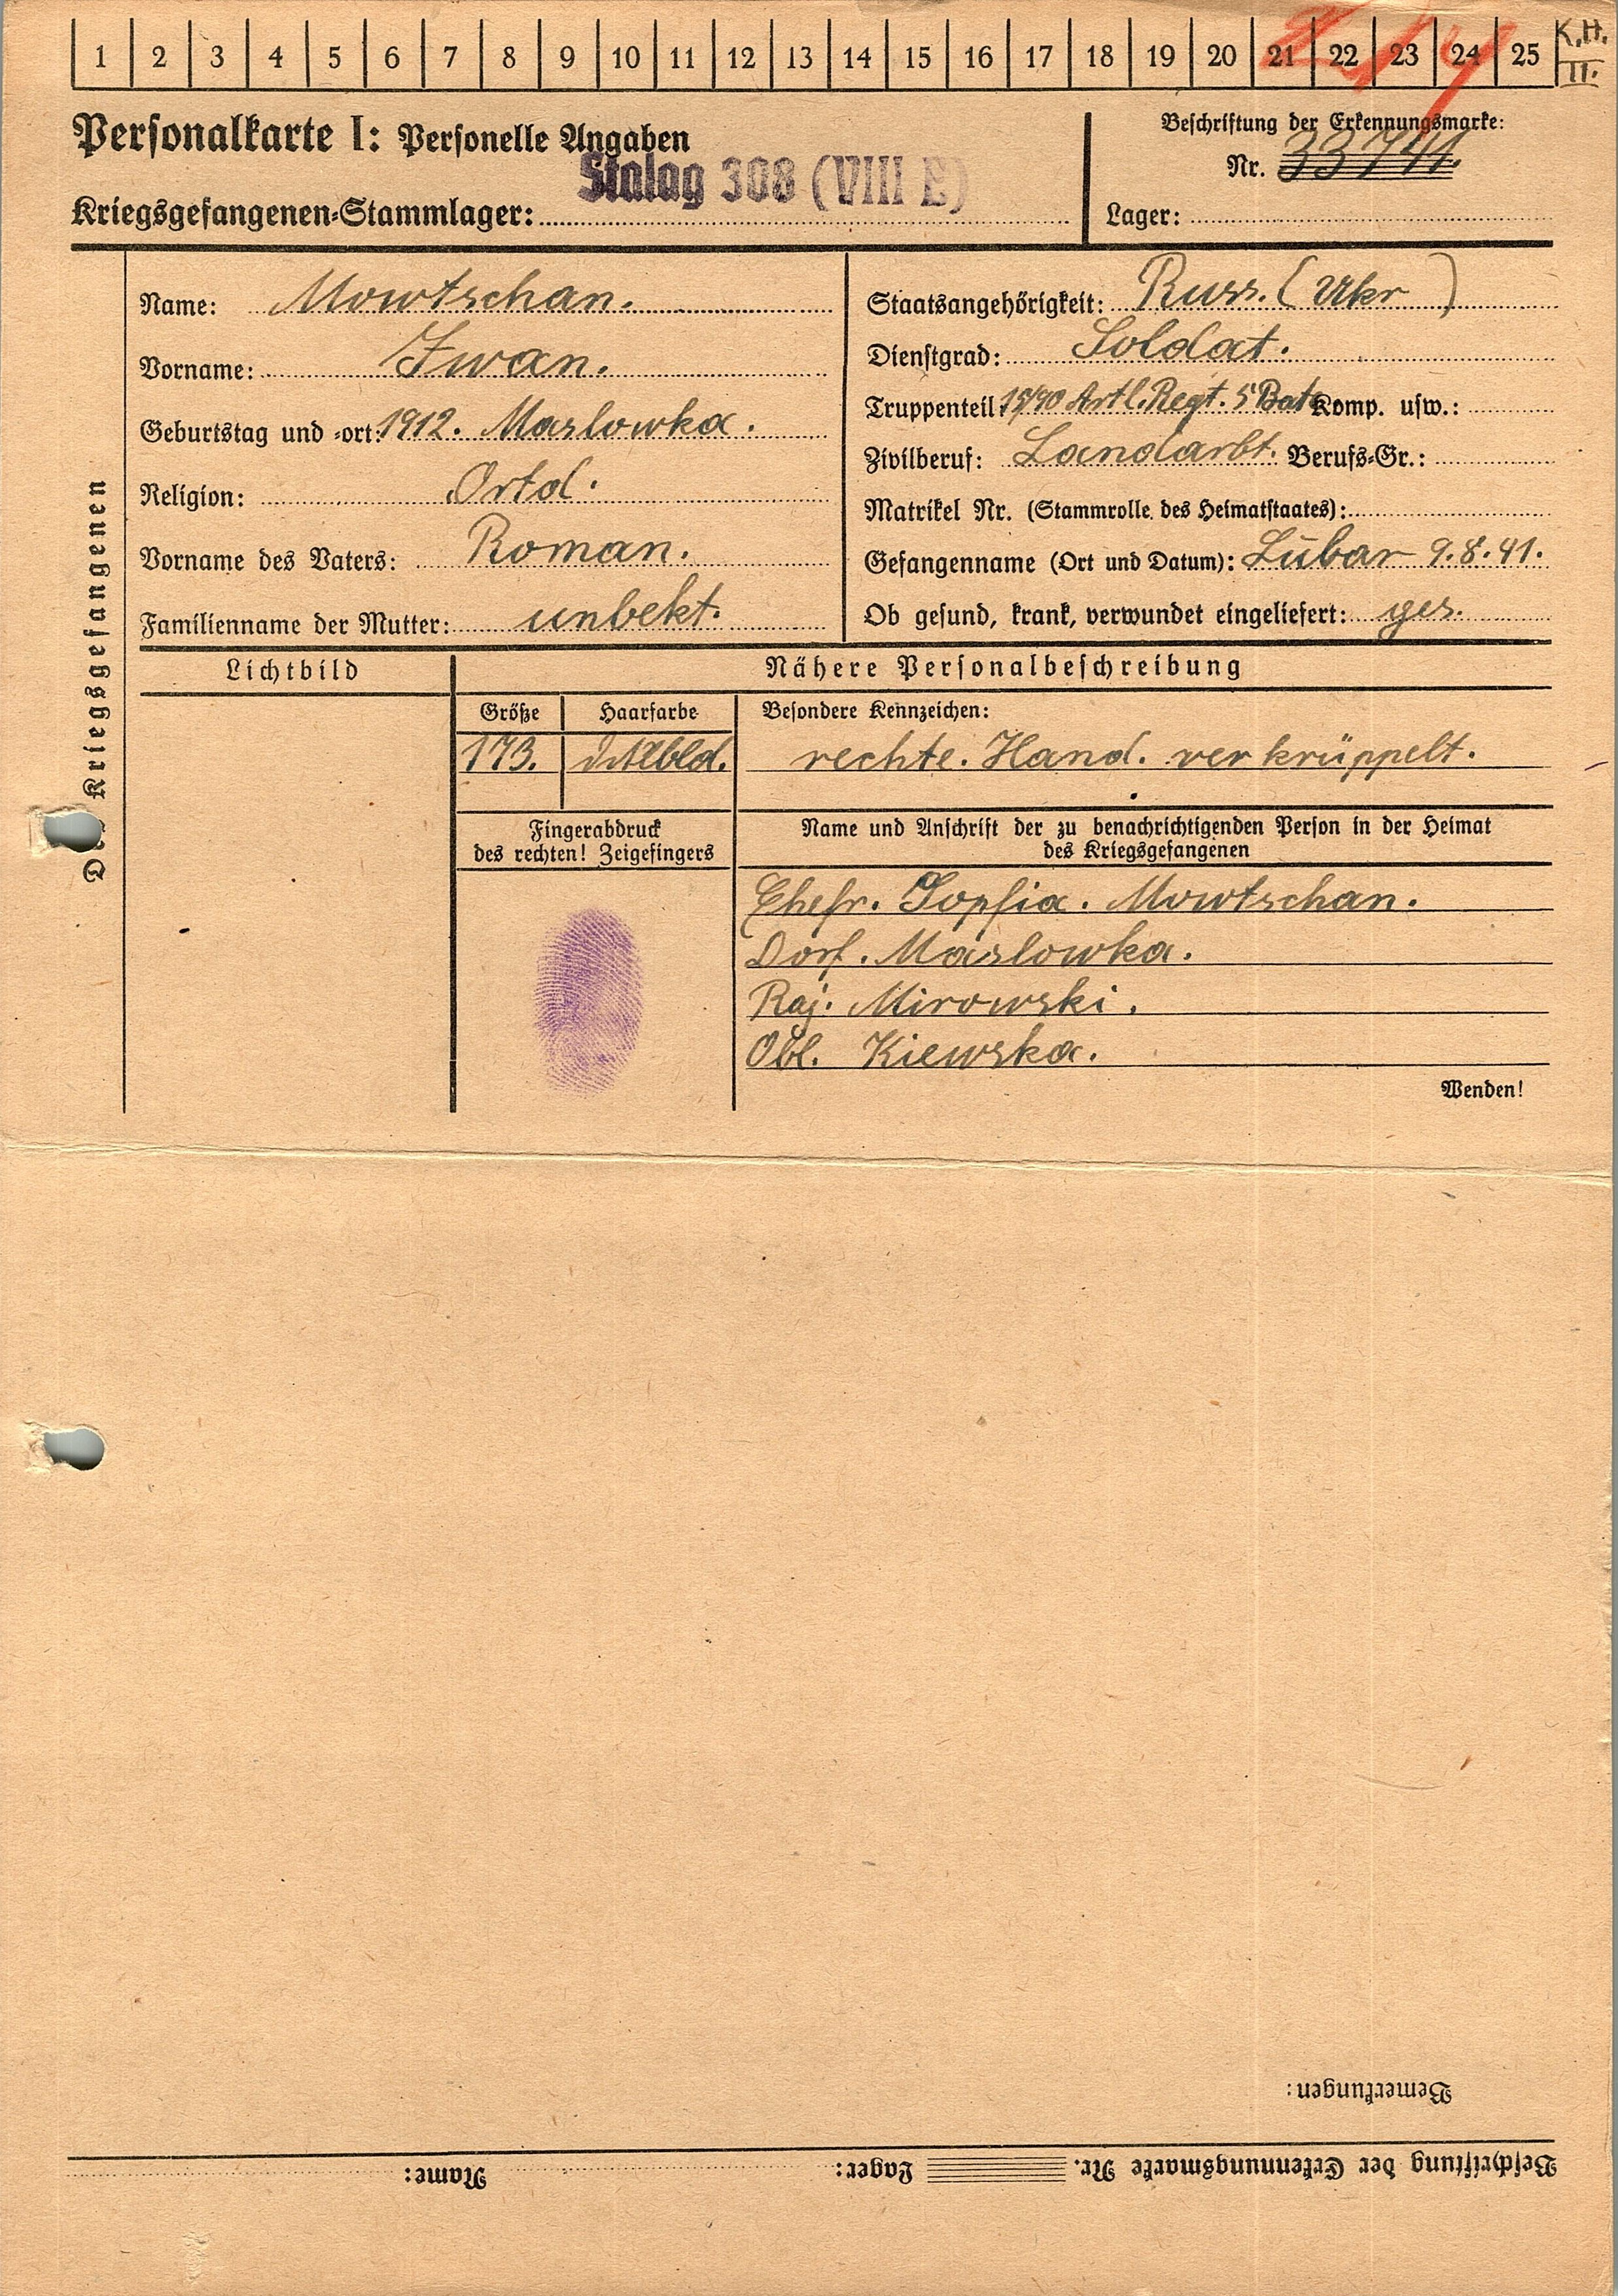 1 2 3 4 5 6 7 8 9 10 11 12 13 14 15 16 17 18 19 20 21 22 23 24 25 K.H. II.
Personalkarte I: Personelle Angaben
Beschriftung der Erkennungsmarke:
Nr. 33741.
Stalag 308 (VIII E)
Kriegsgefangenen-Stammlager:
Lager:
Des Kriegsgefangenen
Name: Mowtschan.
Vorname: Iwan.
Geburtstag und -ort: 1912. Maslowka.
Religion: Ortod.
Vorname des Vaters: Roman.
Familienname der Mutter: unbekt.
Staatsangehörigkeit: Russ. (Ukr)
Dienstgrad: Soldat.
Truppenteil: Artl. Regt. 5 Bat. Komp. usw.:
Zivilberuf: Landarbt. Berufs-Gr.:
Matrikel Nr. (Stammrolle des Heimatstaates):
Gefangennahme (Ort und Datum): Lubar 9.8.41.
Ob gesund, krank, verwundet eingeliefert: ges.
Lichtbild
Nähere Personalbeschreibung
Größe Haarfarbe Besondere Kennzeichen:
173. rechte. Hand. verkrüppelt.
Fingerabdruck
des rechten! Zeigefingers
Name und Anschrift der zu benachrichtigenden Person in der Heimat
des Kriegsgefangenen
Ehefr. Sopfia. Mowtschan.
Dorf. Maslowka.
Raj. Mirowski.
Obl. Kiewska.
Wenden!
Bemerkungen:
Beschriftung der Erkennungsmarke Nr. Lager: Name: